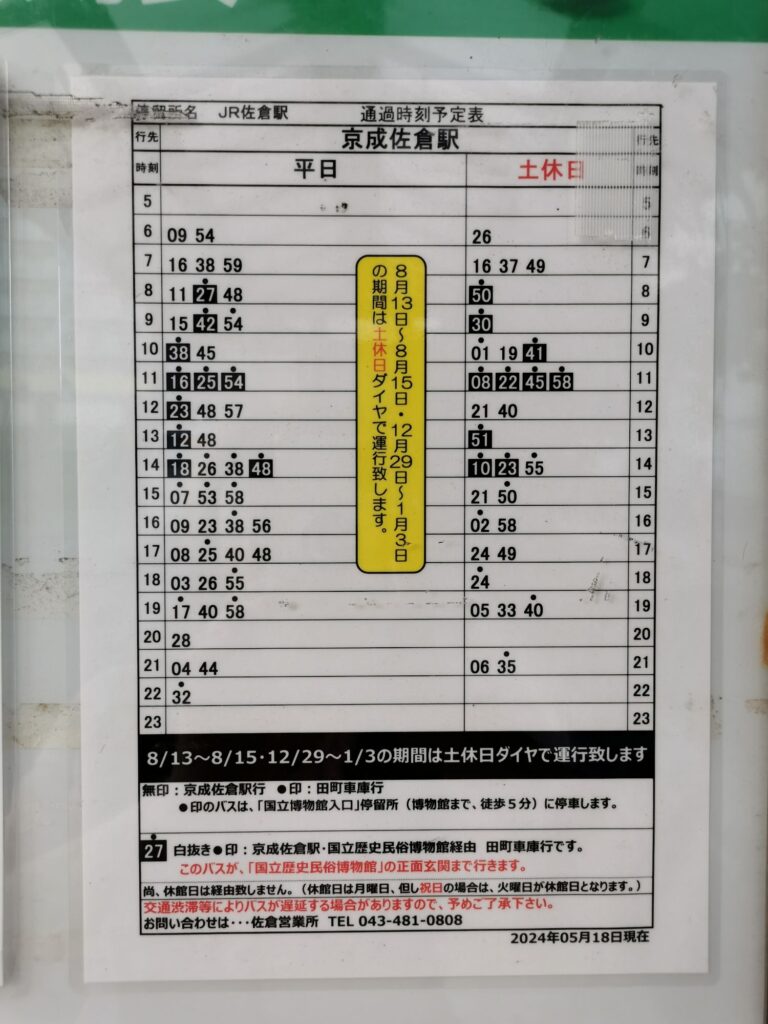 停留所名 JR佐倉駅 通過時刻予定表
行先 京成佐倉駅 行先
時刻 平日 土休日 時刻
5 5
6 09 54 26 6
7 16 38 59 16 37 49 7
8 11 27 48 50 8
9 15 42 54 30 9
10 38 45 01 19 41 10
11 16 25 54 08 22 45 58 11
12 23 48 57 21 40 12
13 12 48 51 13
14 18 26 38 48 10 23 55 14
15 07 53 58 21 50 15
16 09 23 38 56 02 58 16
17 08 25 40 48 24 49 17
18 03 26 55 24 18
19 17 40 58 05 33 40 19
20 28 20
21 04 44 06 35 21
22 32 22
23 23
8月13日～8月15日・12月29日～1月3日
の期間は土休日ダイヤで運行致します。
8/13～8/15･12/29～1/3の期間は土休日ダイヤで運行致します
無印：京成佐倉駅行 ●印：田町車庫行
●印のバスは、「国立博物館入口」停留所（博物館まで、徒歩５分）に停車します。
27 白抜き●印：京成佐倉駅・国立歴史民俗博物館経由 田町車庫行です。
このバスが、「国立歴史民俗博物館」の正面玄関まで行きます。
尚、休館日は経由致しません。（休館日は月曜日、但し祝日の場合は、火曜日が休館日となります。）
交通渋滞等によりバスが遅延する場合がありますので、予めご了承下さい。
お問い合わせは･･･佐倉営業所 TEL 043-481-0808
2024年05月18日現在